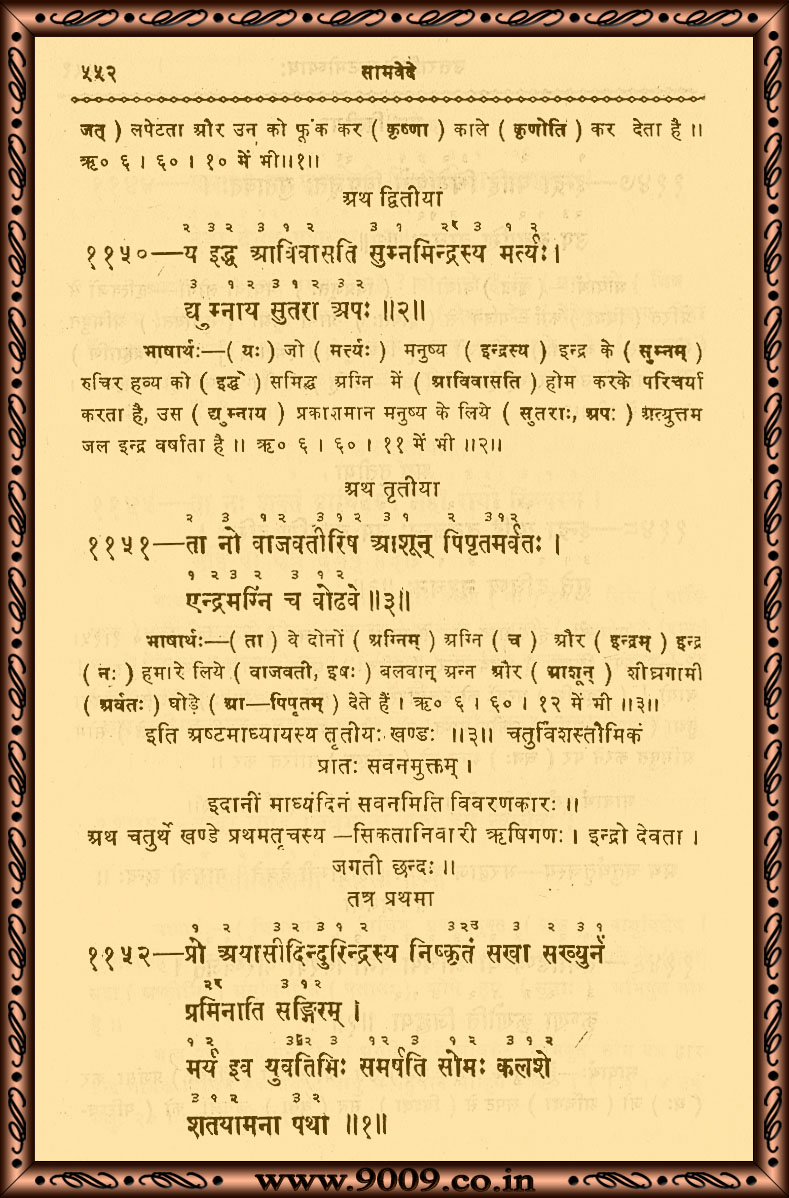 ५५२ सामवेदे
जत् ) लपेटता और उन को फूंक कर ( कृष्णा ) काले ( कृणोति ) कर देता है ॥
ऋ० ६ । ६० । १० में भी॥१॥
अथ द्वितीया
२ ३ २ ३ १ २ ३ १ २र ३ १ २
११५०—य इद्ध आविवासति सुम्नमिन्द्रस्य मर्त्यः।
३ १ २ ३ १ २ ३ २
द्युम्नाय सुतरा अपः ॥२॥
भाषार्थः—( यः ) जो ( मर्त्त्यः ) मनुष्य ( इन्द्रस्य ) इन्द्र के ( सुम्नम् )
रुचिर हव्य को ( इद्धे ) समिद्ध अग्नि में ( आविवासति ) होम करके परिचर्या
करता है, उस ( द्युम्नाय ) प्रकाशमान मनुष्य के लिये ( सुतराः, अपः ) अत्युत्तम
जल इन्द्र वर्षाता है ॥ ऋ० ६ । ६० । ११ में भी ॥२॥
अथ तृतीया
२ ३ १ २ ३ १ २ ३ १ २ ३१२
११५१—ता नो वाजवतीरिष आशून् पिपृतमर्वतः ।
१ २ ३ २ ३ १ २
एन्द्रमग्निं च वोढवे ॥३॥
भाषार्थः—( ता ) वे दोनों ( अग्निम् ) अग्नि ( च ) और ( इन्द्रम् ) इन्द्र
( नः ) हमारे लिये ( वाजवती, इषः ) बलवान् अन्न और ( आशून् ) शीघ्रगामी
( अर्वतः ) घोड़े ( आ—पिपृतम् ) देते हैं । ऋ० ६ । ६० । १२ में भी ॥३॥
इति अष्टमाध्यायस्य तृतीयः खण्डः ॥३॥ चतुर्विंशस्तौमिकं
प्रातः सवनमुक्तम् ।
इदानीं माध्यंदिनं सवनमिति विवरणकारः ॥
अथ चतुर्थे खण्डे प्रथमतृचस्य —सिकतानिवारी ऋषिगणः । इन्द्रो देवता ।
जगती छन्दः ॥
तत्र प्रथमा
१ २ ३ २ ३ १ २ ३ २उ ३ २ ३ १
११५२—प्रो अयासीदिन्दुरिन्द्रस्य निष्कृतं सखा सख्युर्न
२र ३ १२
प्रमिनाति सङ्गिरम् ।
१ २ ३२ ३ १२ ३ १२ ३१२
मर्य इव युवतिभिः समर्षति सोमः कलशे
३ १ २ ३ २
शतयामना पथा ॥१॥
www.9009.co.in